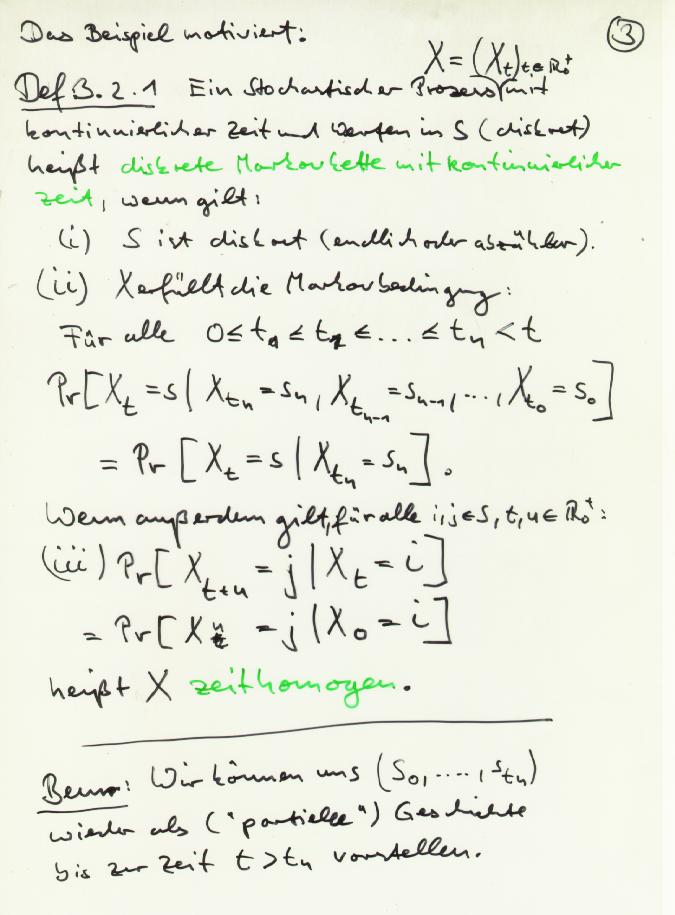 Das Beispiel motiviert: ③
X = (X_t)_{t∈ℝ₀⁺}
Def 3.2.1 Ein stochastischer Prozess mit
kontinuierlicher Zeit und Werten in S (diskret)
heißt diskrete Markovkette mit kontinuierlicher
Zeit, wenn gilt:
(i) S ist diskret (endlich oder abzählbar).
(ii) X erfüllt die Markovbedingung:
Für alle 0 ≤ t₁ ≤ t₂ ≤ ... ≤ t_n < t
Pr[X_t = s | X_{t_n} = s_n, X_{t_{n-1}} = s_{n-1}, ..., X_{t_0} = s_0]
= Pr[X_t = s | X_{t_n} = s_n].
Wenn außerdem gilt, für alle i,j ∈ S, t,u ∈ ℝ₀⁺:
(iii) Pr[X_{t+u} = j | X_t = i]
= Pr[X_u = j | X_0 = i]
heißt X zeithomogen.
Bem: Wir können uns (s_0, ...., s_{t_n})
wieder als ("partielle") Geschichte
bis zur Zeit t > t_n vorstellen.